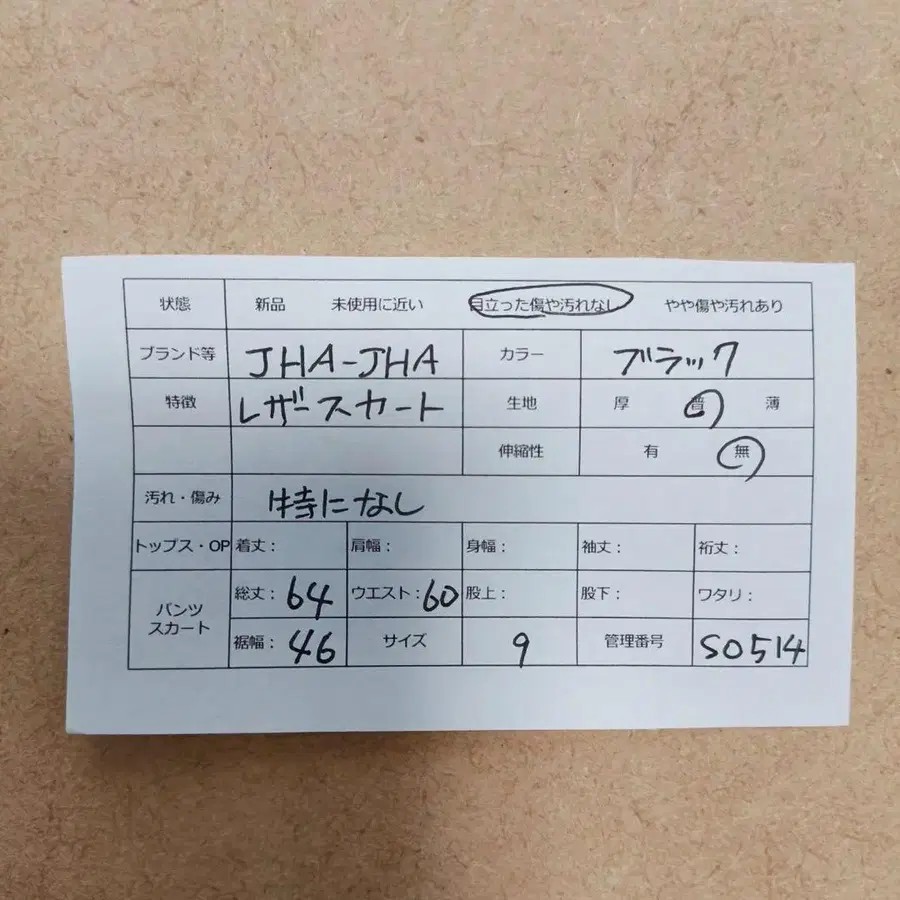 状態 新品 未使用に近い 目立った傷や汚れなし やや傷や汚れあり
ブランド等 JHA-JHA カラー ブラック
特徴 レザースカート 生地 厚 普 薄
伸縮性 有 無
汚れ・傷み 特になし
トップス・OP 着丈: 肩幅: 身幅: 袖丈: 裄丈:
パンツ スカート 総丈: 64 ウエスト: 60 股上: 股下: ワタリ:
裾幅: 46 サイズ 9 管理番号 S0514